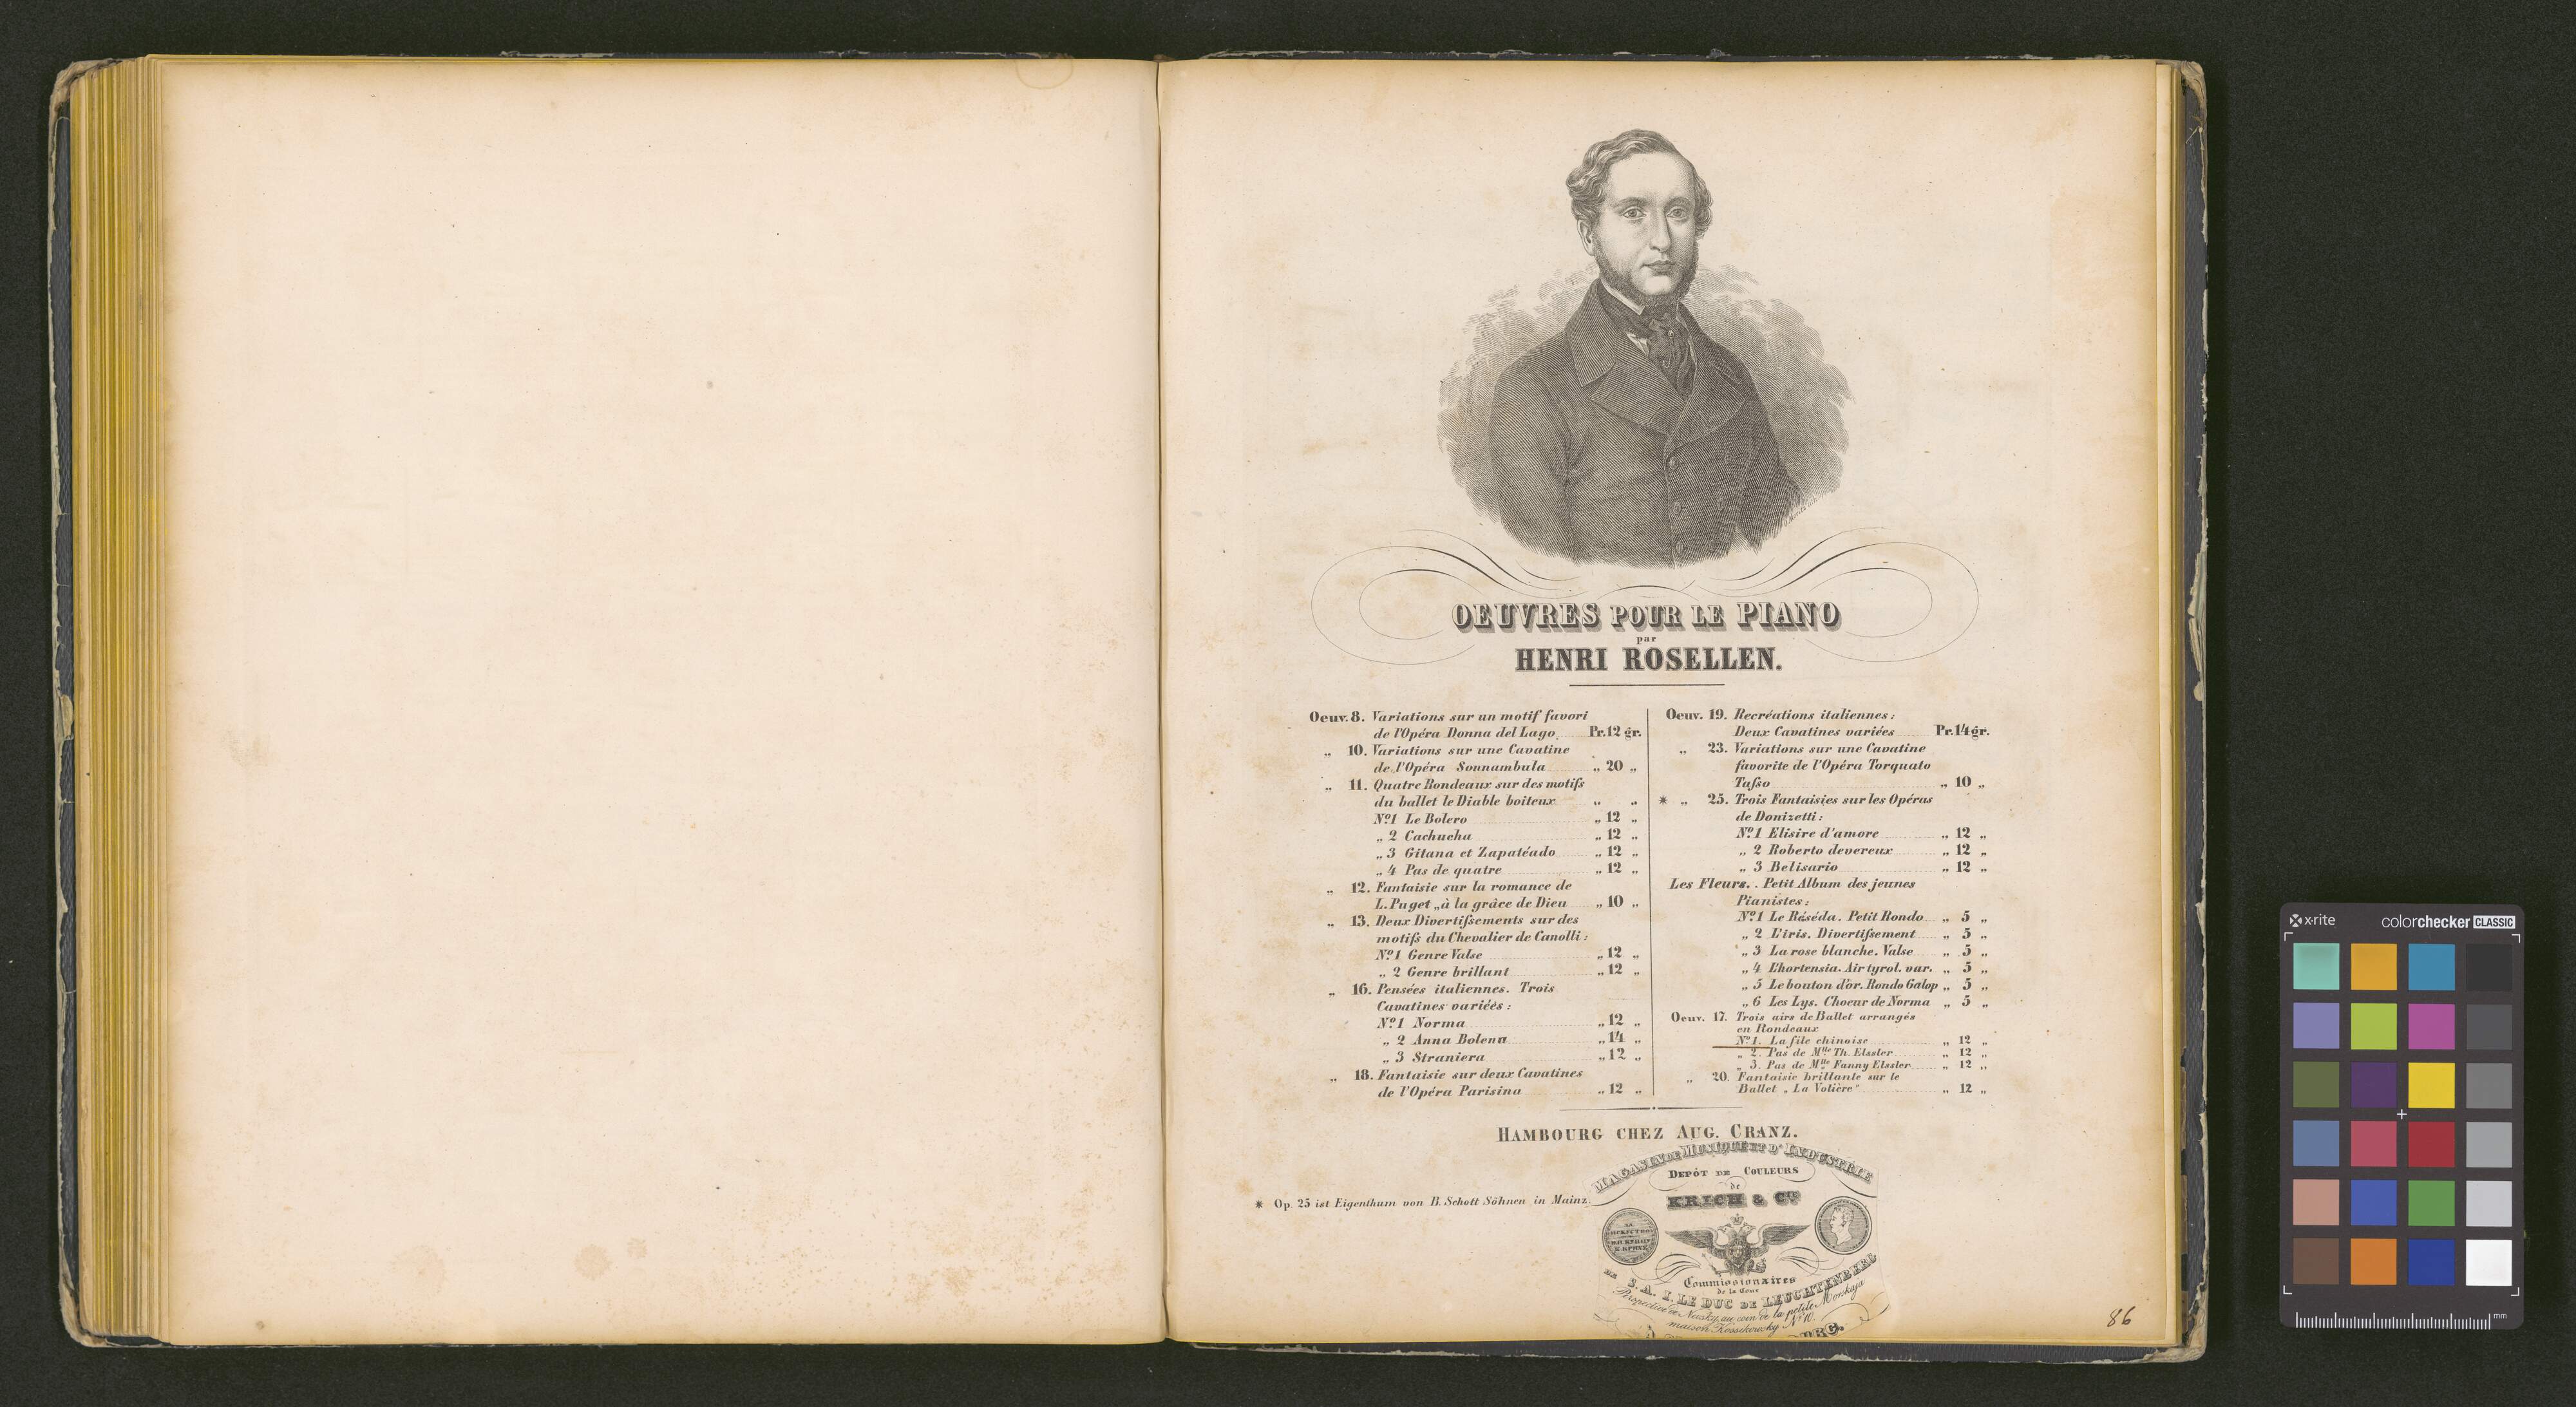 OEUVRES POUR LE PIANO
par
HENRI ROSELLEN.
Oeuv. 8. Variations sur un motif favori
de l'Opéra Donna del Lago Pr. 12 gr.
„ 10. Variations sur une Cavatine
de l'Opéra Sonnambula „ 20 „
„ 11. Quatre Rondeaux sur des motifs
du ballet le Diable boiteux „ „
No. 1 Le Bolero „ 12 „
„ 2 Cachucha „ 12 „
„ 3 Gitana et Zapatéado „ 12 „
„ 4 Pas de quatre „ 12 „
„ 12. Fantaisie sur la romance de
L. Puget „à la grâce de Dieu „ 10 „
„ 13. Deux Divertiſsements sur des
motifs du Chevalier de Canolli:
No. 1 Genre Valse „ 12 „
„ 2 Genre brillant „ 12 „
„ 16. Pensées italiennes. Trois
Cavatines variées:
No. 1 Norma „ 12 „
„ 2 Anna Bolena „ 14 „
„ 3 Straniera „ 12 „
„ 18. Fantaisie sur deux Cavatines
de l'Opéra Parisina „ 12 „
Oeuv. 19. Recréations italiennes:
Deux Cavatines variées Pr. 14 gr.
„ 23. Variations sur une Cavatine
favorite de l'Opéra Torquato
Taſso „ 10 „
* „ 25. Trois Fantaisies sur les Opéras
de Donizetti:
No. 1 Elisire d'amore „ 12 „
„ 2 Roberto devereux „ 12 „
„ 3 Belisario „ 12 „
Les Fleurs. . Petit Album des jeunes
Pianistes:
No. 1 Le Réséda. Petit Rondo „ 5 „
„ 2 L'iris. Divertiſsement „ 5 „
„ 3 La rose blanche. Valse „ 5 „
„ 4 L'hortensia. Air tyrol. var. „ 5 „
„ 5 Le bouton d'or. Rondo Galop „ 5 „
„ 6 Les Lys. Choeur de Norma „ 5 „
Oeuv. 17. Trois airs de Ballet arrangés
en Rondeaux
No. 1. La file chinoise „ 12 „
„ 2. Pas de Mlle Th. Elssler „ 12 „
„ 3. Pas de Mlle Fanny Elssler „ 12 „
„ 20. Fantaisie brillante sur le
Ballet „La Volière" „ 12 „
HAMBOURG CHEZ AUG. CRANZ.
* Op. 25 ist Eigenthum von B. Schott Söhnen in Mainz.
MAGASIN DE MUSIQUE ET D'INDUSTRIE
DEPÔT DE COULEURS
de
KRICH & Co
Commissionaires
de la Cour
DE S. A. I. LE DUC DE LEUCHTENBERG
Perspective de Newsky, au coin de la petite Morskaja
maison Kossikowsky No. 10.
86
x-rite
colorchecker CLASSIC
mm